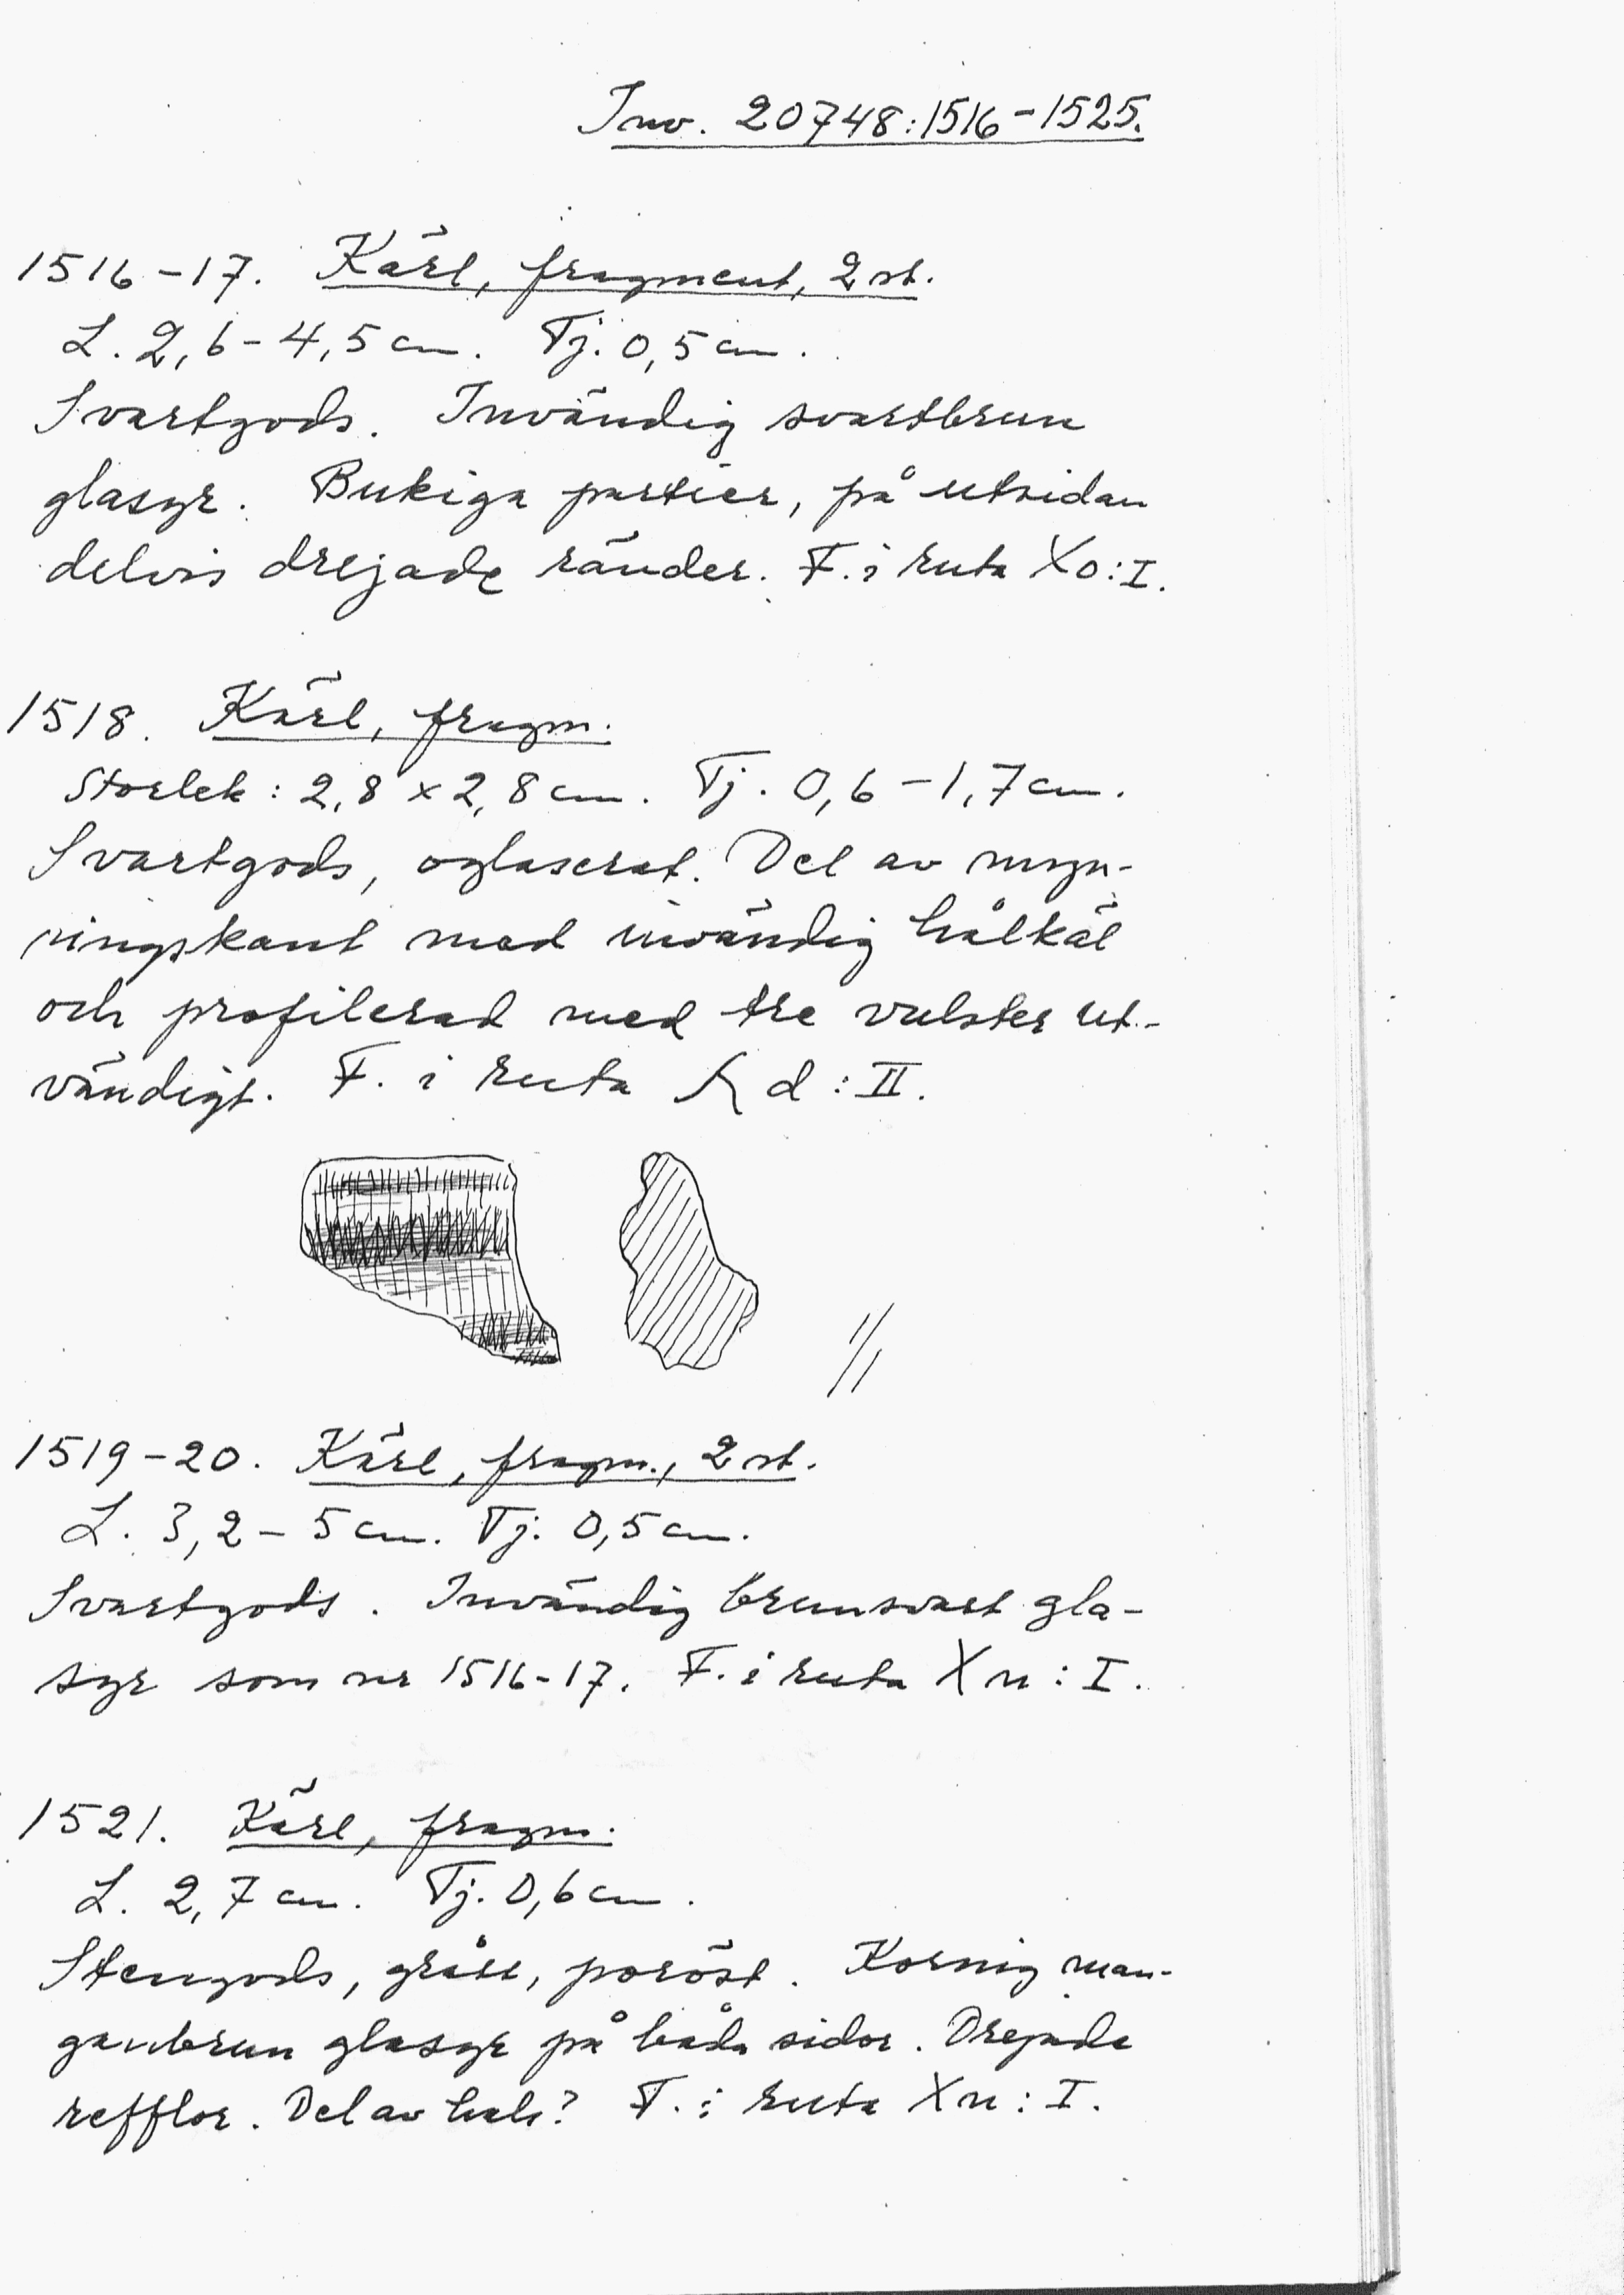 Inv. 20748:1516-1525.
1516-17. Kärl, fragment, 2 st.
L. 2,6-4,5 cm. Tj. 0,5 cm.
Svartgods. Invändig svartbrun
glasyr. Bukiga partier, på utsidan
delvis drejade ränder. F. i ruta Xo:I.
1518. Kärl, fragm.
Storlek: 2,8 x 2,8 cm. Tj. 0,6-1,7 cm.
Svartgods, oglaserat. Del av myn-
ningskant med invändig hålkäl
och profilerad med tre vulster ut-
vändigt. F. i ruta d:II.
1/1
1519-20. Kärl, fragm., 2 st.
L. 3,2-5 cm. Tj. 0,5 cm.
Svartgods. Invändig brunsvart gla-
syr som nr 1516-17. F. i ruta Xn:I.
1521. Kärl, fragm.
L. 2,7 cm. Tj. 0,6 cm.
Stengods, grått, poröst. Kornig man-
ganbrun glasyr på båda sidor. Drejade
refflor. Del av hals? F. i ruta Xn:I.